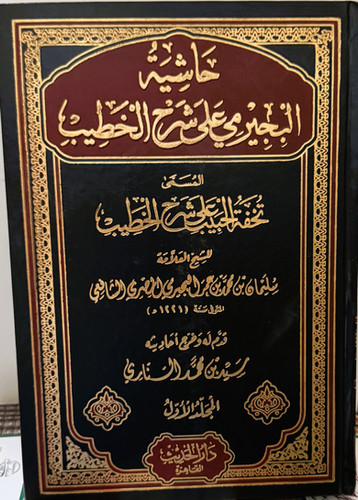 حاشية
البجيرمي على شرح الخطيب
المسمى
تحفة الحبيب على شرح الخطيب
للشيخ العلامة
سليمان بن محمد بن عمر البجيرمي المصري الشافعي
المتوفى سنة (١٢٢١ هـ)
قدم له وخرج أحاديثه
سيد بن محمد السناري
المجلد الأول
دار الحديث
القاهرة